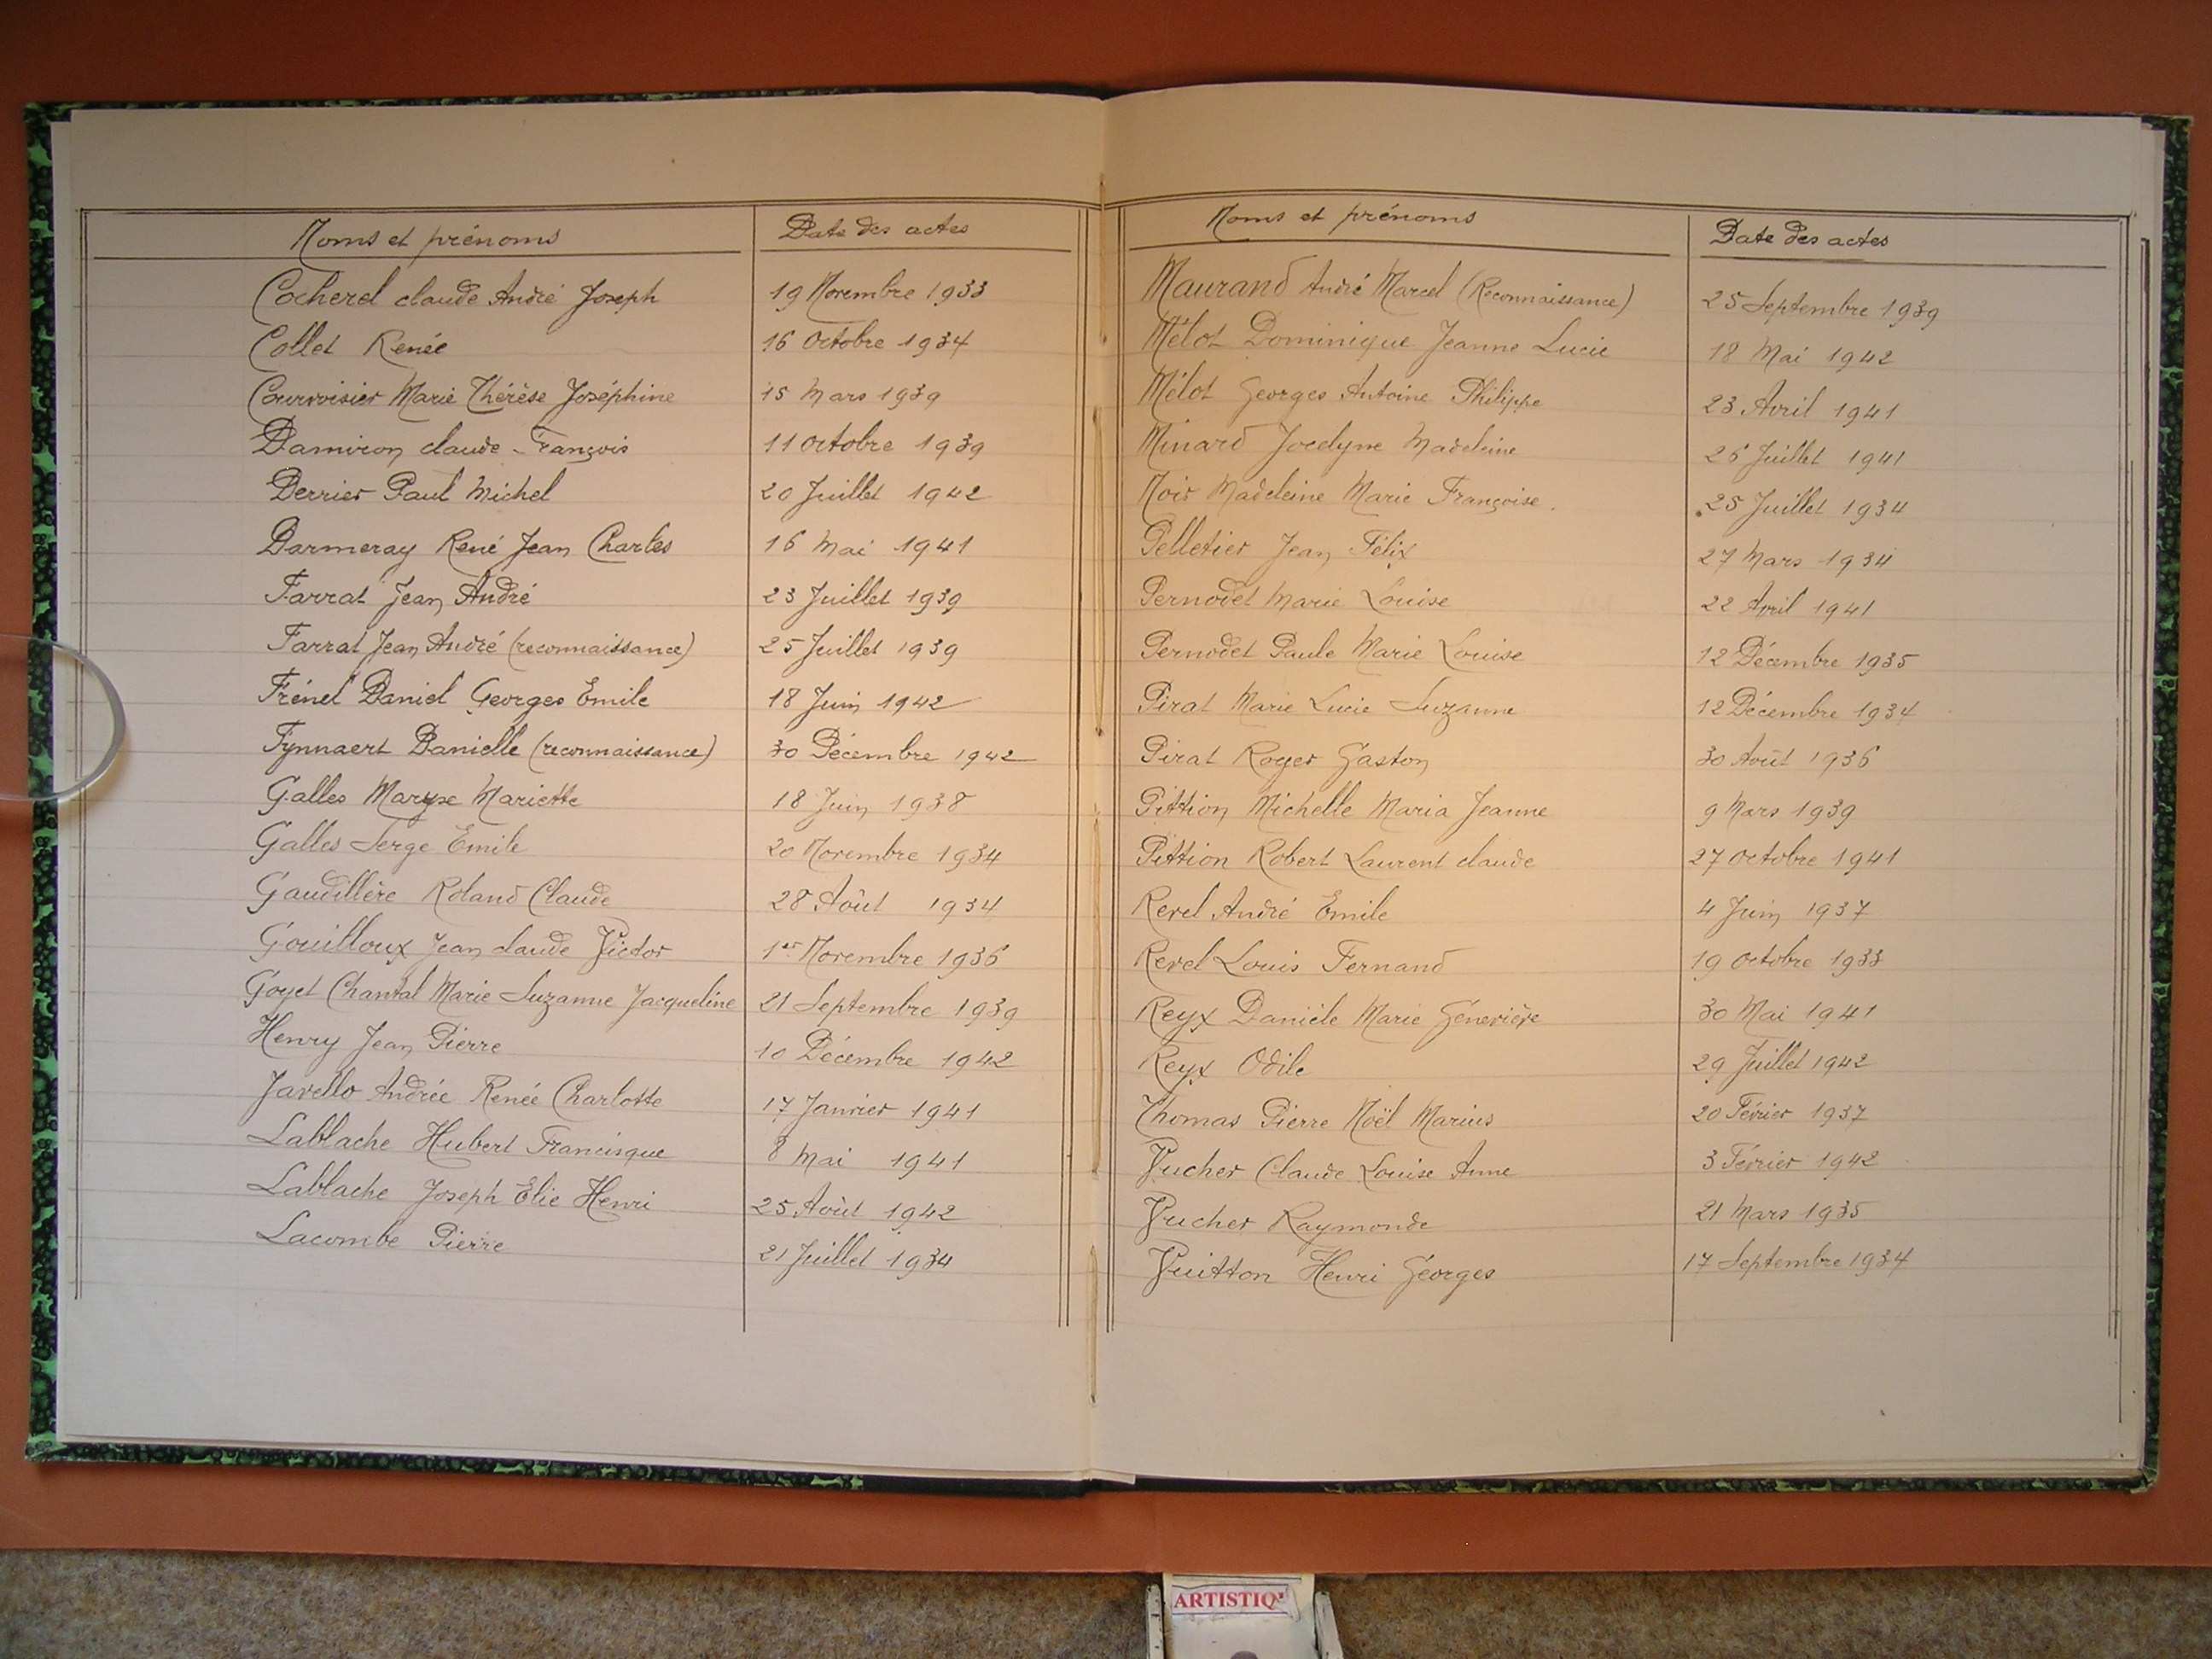 Noms et prénoms Date des actes
Cocherel claude André Joseph 19 Novembre 1933
Collet Renée 16 Octobre 1934
Courvoisier Marie Thérèse Joséphine 15 Mars 1939
Damiron claude - François 11 octobre 1939
Derrier Paul Michel 20 Juillet 1942
Darmeray René Jean Charles 16 Mai 1941
Farrat Jean André 23 Juillet 1939
Farrat Jean André (reconnaissance) 25 Juillet 1939
Frénet Daniel Georges Emile 18 Juin 1942
Fynnaert Danielle (reconnaissance) 30 Décembre 1942
Galles Maryse Mariette 18 Juin 1938
Galles Serge Emile 20 Novembre 1934
Gaudillère Roland Claude 28 Août 1934
Gouilloux Jean claude Victor 1er Novembre 1936
Goyet Chantal Marie Suzanne Jacqueline 21 Septembre 1939
Henry Jean Pierre 10 Décembre 1942
Javello Andrée Renée Charlotte 17 Janvier 1941
Lablache Hubert Francisque 8 Mai 1941
Lablache Joseph Elie Henri 25 Août 1942
Lacombe Pierre 21 Juillet 1934
Noms et prénoms Date des actes
Maurand André Marcel (Reconnaissance) 25 Septembre 1939
Mélot Dominique Jeanne Lucie 18 Mai 1942
Mélot Georges Antoine Philippe 23 Avril 1941
Minard Jocelyne Madeleine 26 Juillet 1941
Noir Madeleine Marie Françoise. 25 Juillet 1934
Pelletier Jean Félix 27 Mars 1934
Pernodet Marie Louise 22 Avril 1941
Pernodet Paule Marie Louise 12 Décembre 1935
Pirat Marie Lucie Suzanne 12 Décembre 1934
Pirat Roger Gaston 30 Août 1936
Pittion Michelle Maria Jeanne 9 Mars 1939
Pittion Robert Laurent claude 27 octobre 1941
Revel André Emile 4 Juin 1937
Revel Louis Fernand 19 octobre 1933
Reyx Danièle Marie Géneviève 30 Mai 1941
Reyx Odile 29 Juillet 1942
Thomas Pierre Noël Marius 20 Février 1937
Vucher Claude Louise Anne 3 Février 1942
Vucher Raymonde 21 Mars 1935
Vuitton Henri Georges 17 Septembre 1934
ARTISTIQ